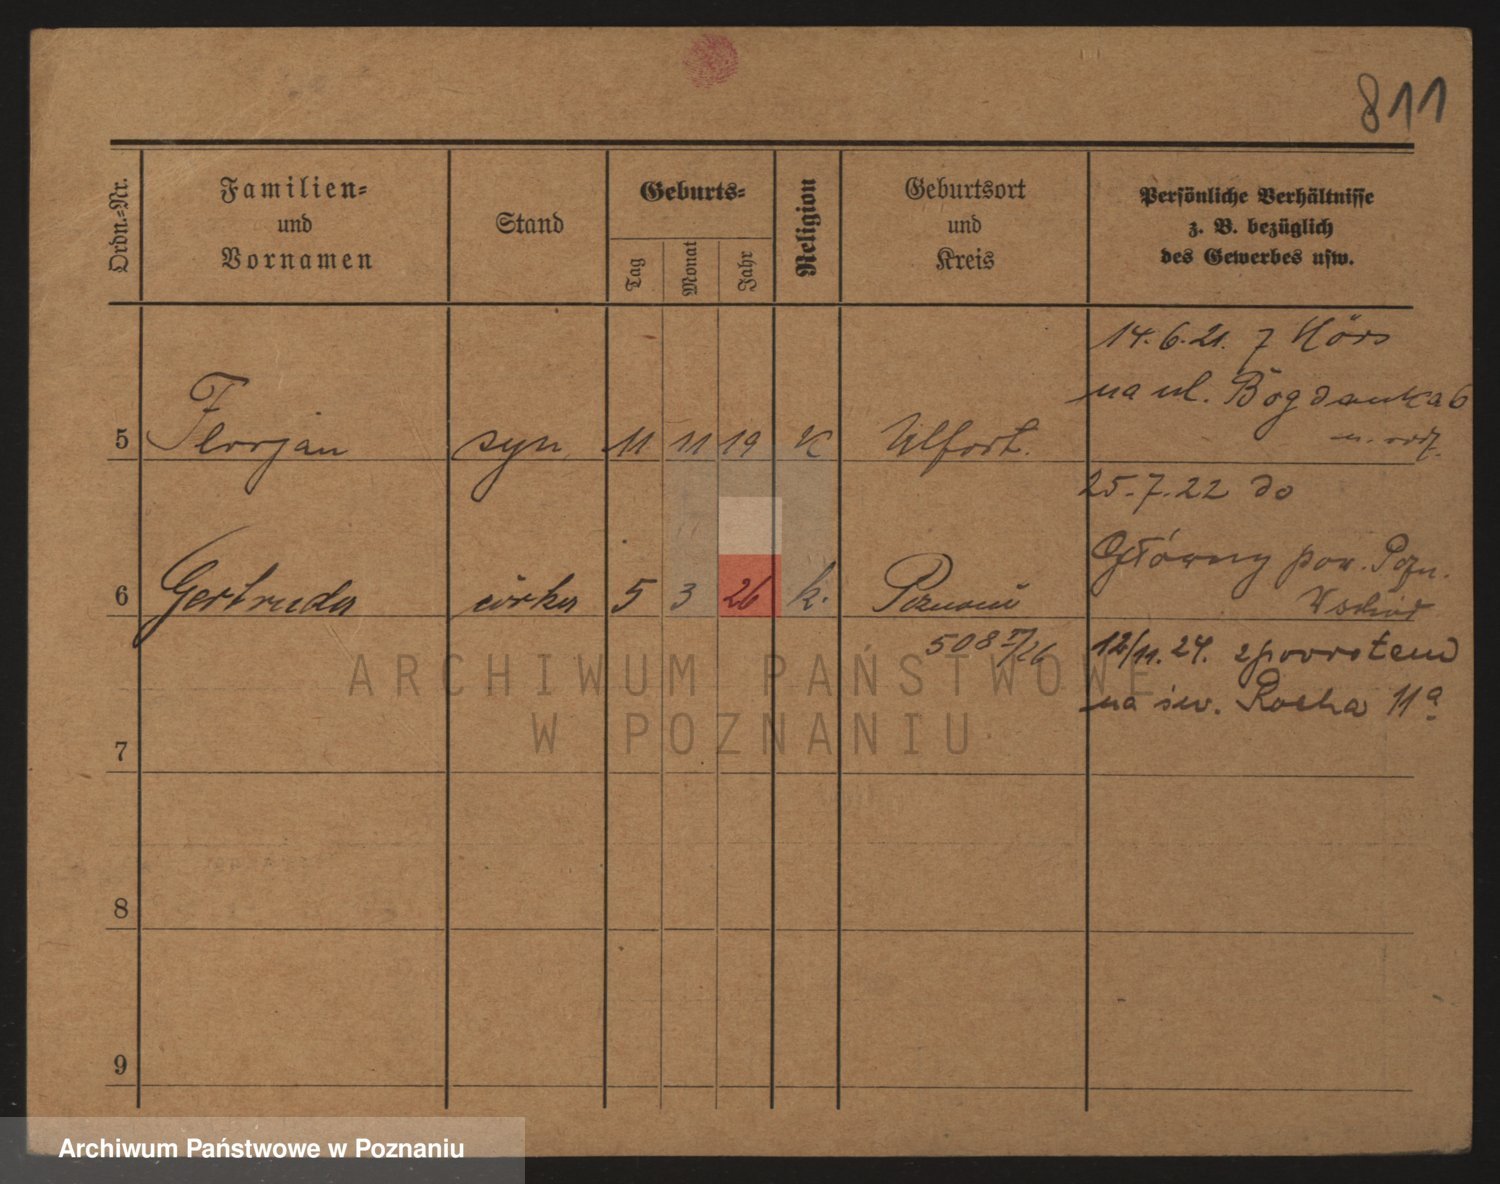 811
Ordn.=Nr.
Familien=
und
Vornamen
Stand
Geburts=
Tag
Monat
Jahr
Religion
Geburtsort
und
Kreis
Persönliche Verhältnisse
z. B. bezüglich
des Gewerbes usw.
14.6.21. z
na ul. Bogdanka 6
5 Florjan syn 11 11 19 K Ulfort.
25.7.22 do
pow. Pozn.
Wschód
6 Gertruda córka 5 3 26 k. Poznań
508 V/26
12/11. 24. zpowrotem
na św. Rocha 11a
7
8
9
ARCHIWUM PAŃSTWOWE
W POZNANIU
Archiwum Państwowe w Poznaniu